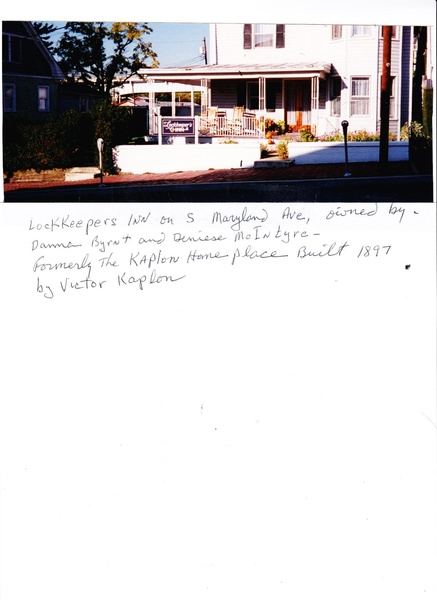 Lockkeeper's
INN
LockKeepers INN on S Maryland Ave, owned by
Danna Byrnt and Deniese McIntyre -
formerly The KAPlon Home place Built 1897
by Victor Kaplon